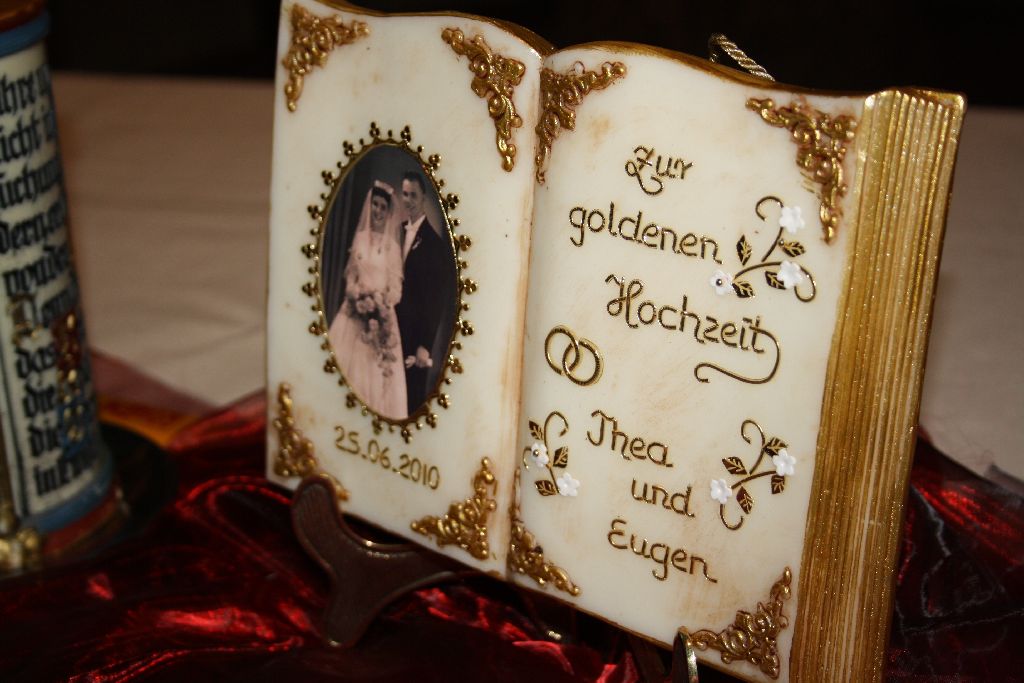 25.06.2010
Zur
goldenen
Hochzeit
Thea
und
Eugen
das
die